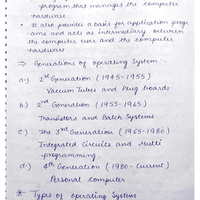 program that manages the computer
hardware
• It also provides a basis for application progr
ams and acts as intermediary between
the computer user and the computer
hardware
⇒ Generations of operating System :-
a·) 1st Generation (1945-1955)
Vacuum Tubes and Plug boards
b·) 2nd Generation (1955-1965)
Transistors and Batch Systems
c·) The 3rd Generation (1965-1980)
Integrated Circuits and Multi
programming
d·) 4th Generation (1980-Current)
Personal computer
* Types of operating System